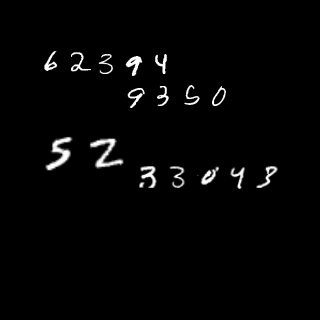 62394
9350
52
33043